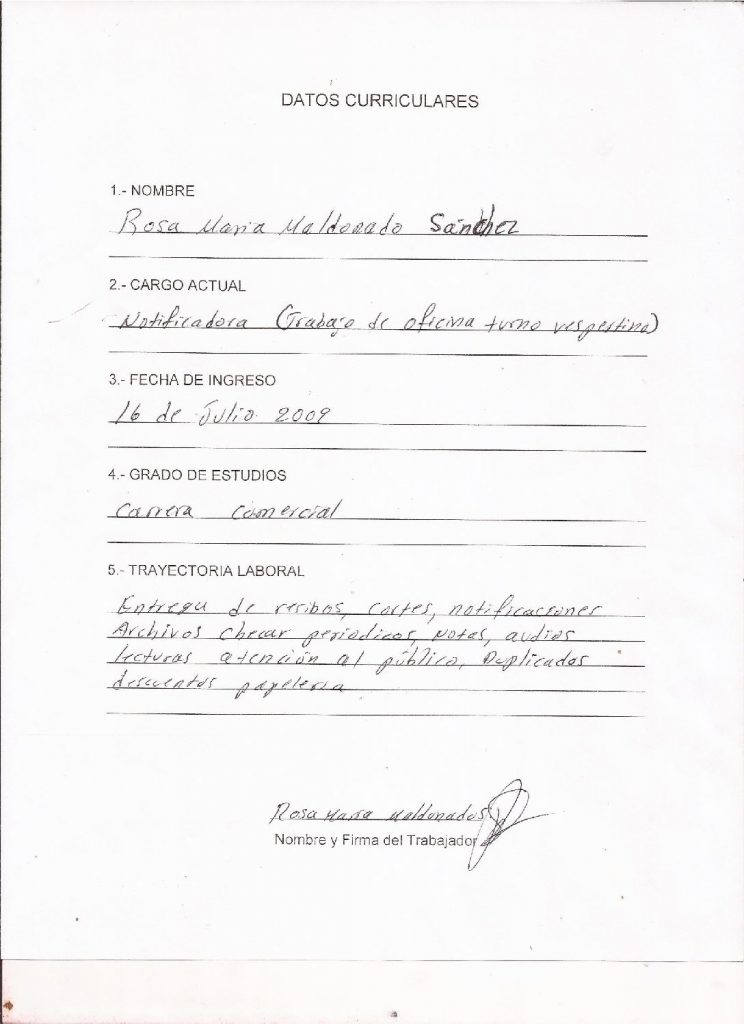 DATOS CURRICULARES
1.- NOMBRE
Rosa Maria Maldonado Sánchez
2.- CARGO ACTUAL
Notificadora (Trabajo de oficina turno vespertino)
3.- FECHA DE INGRESO
16 de Julio 2009
4.- GRADO DE ESTUDIOS
Carrera Comercial
5.- TRAYECTORIA LABORAL
Entrega de recibos, cortes, notificaciones
Archivos checar periodicos, Notas, audios
lecturas atención al público, Duplicados
descuentos papeleria
Rosa Maria Maldonado S
Nombre y Firma del Trabajador